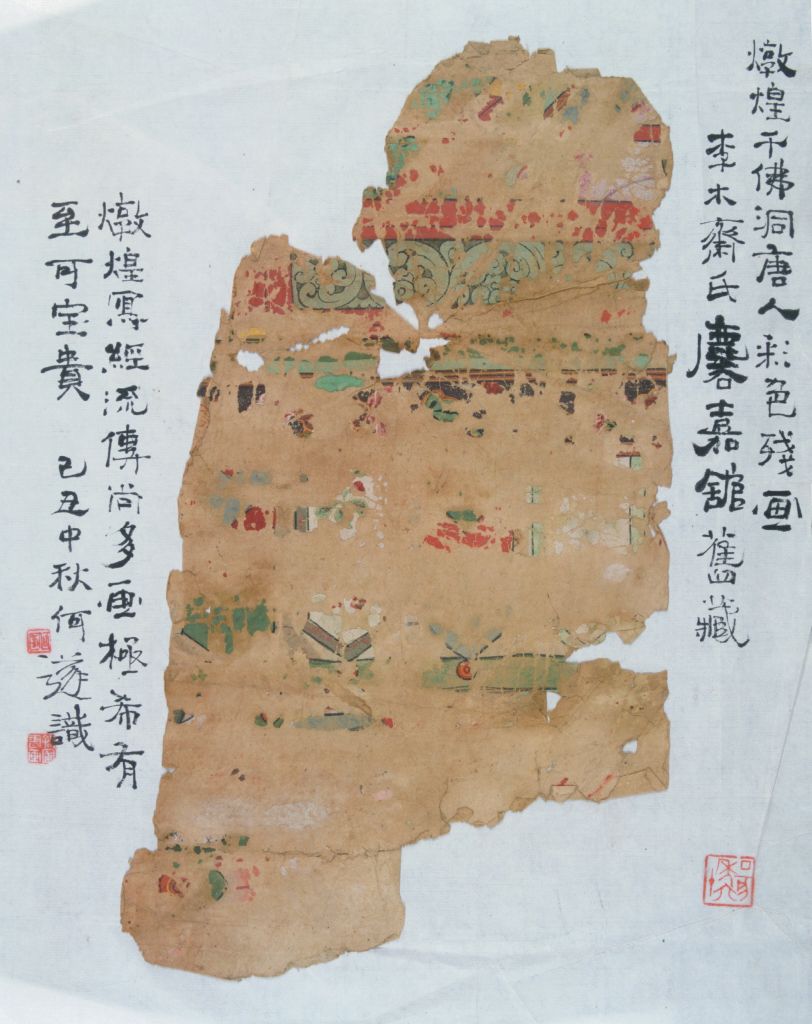 燉煌千佛洞唐人彩色殘画
李木齋氏麐嘉館舊藏
燉煌寫經流傳尚多画極希有
至可宝貴 己丑中秋何遂識